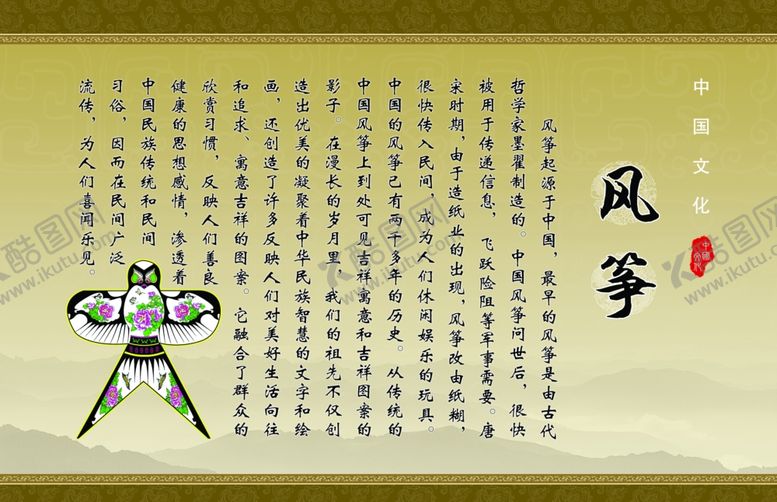 中国文化
中国文化
风筝
风筝起源于中国，最早的风筝是由古代
哲学家墨翟制造的。中国风筝问世后，很快
被用于传递信息，飞跃险阻等军事需要。唐
宋时期，由于造纸业的出现，风筝改由纸糊，
很快传入民间，成为人们休闲娱乐的玩具。
中国的风筝已有两千多年的历史。从传统的
中国风筝上到处可见吉祥寓意和吉祥图案的
影子。在漫长的岁月里，我们的祖先不仅创
造出优美的凝聚着中华民族智慧的文字和绘
画，还创造了许多反映人们对美好生活向往
和追求、寓意吉祥的图案。它融合了群众的
欣赏习惯，反映人们善良
健康的思想感情，渗透着
中国民族传统和民间
习俗，因而在民间广泛
流传，为人们喜闻乐见。
酷图网
www.ikutu.com